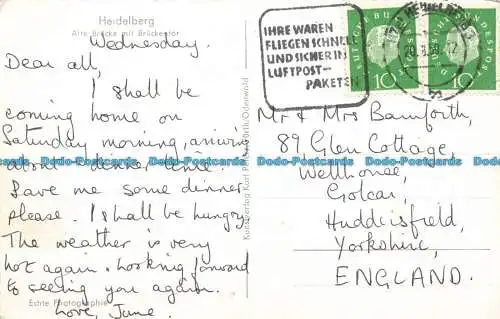 Heidelberg
Alte Brücke mit Brückentor
Wednesday.
Dear all,
I shall be
coming home on
Saturday morning, arriving
about dinner time.
Save me some dinner
please. I shall be hungry.
The weather is very
hot again. Looking forward
to seeing you again.
Love, June.
Echte Photographie
Kunstverlag Karl
IHRE WAREN
FLIEGEN SCHNELL
UND SICHER IN
LUFTPOST-
PAKETEN
DEUTSCHE BUNDESPOST
10
DEUTSCHE BUNDESPOST
10
HEIDELBERG
Mr & Mrs Bamforth,
89, Glen Cottage,
Wellhouse,
Golcar,
Huddersfield,
Yorkshire,
ENGLAND.
Dodo-Postcards Dodo-Postcards Dodo-Postcards Dodo-Postcards